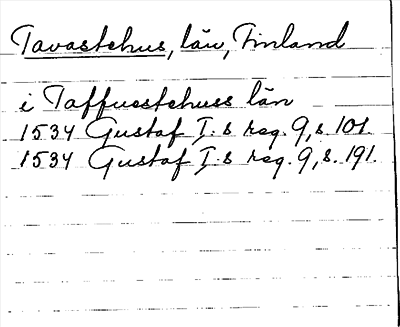 Tavastehus, län, Finland
i Taffuestehuss län
1534 Gustaf I:s reg. 9, s. 101.
1534 Gustaf I:s reg. 9, s. 191.